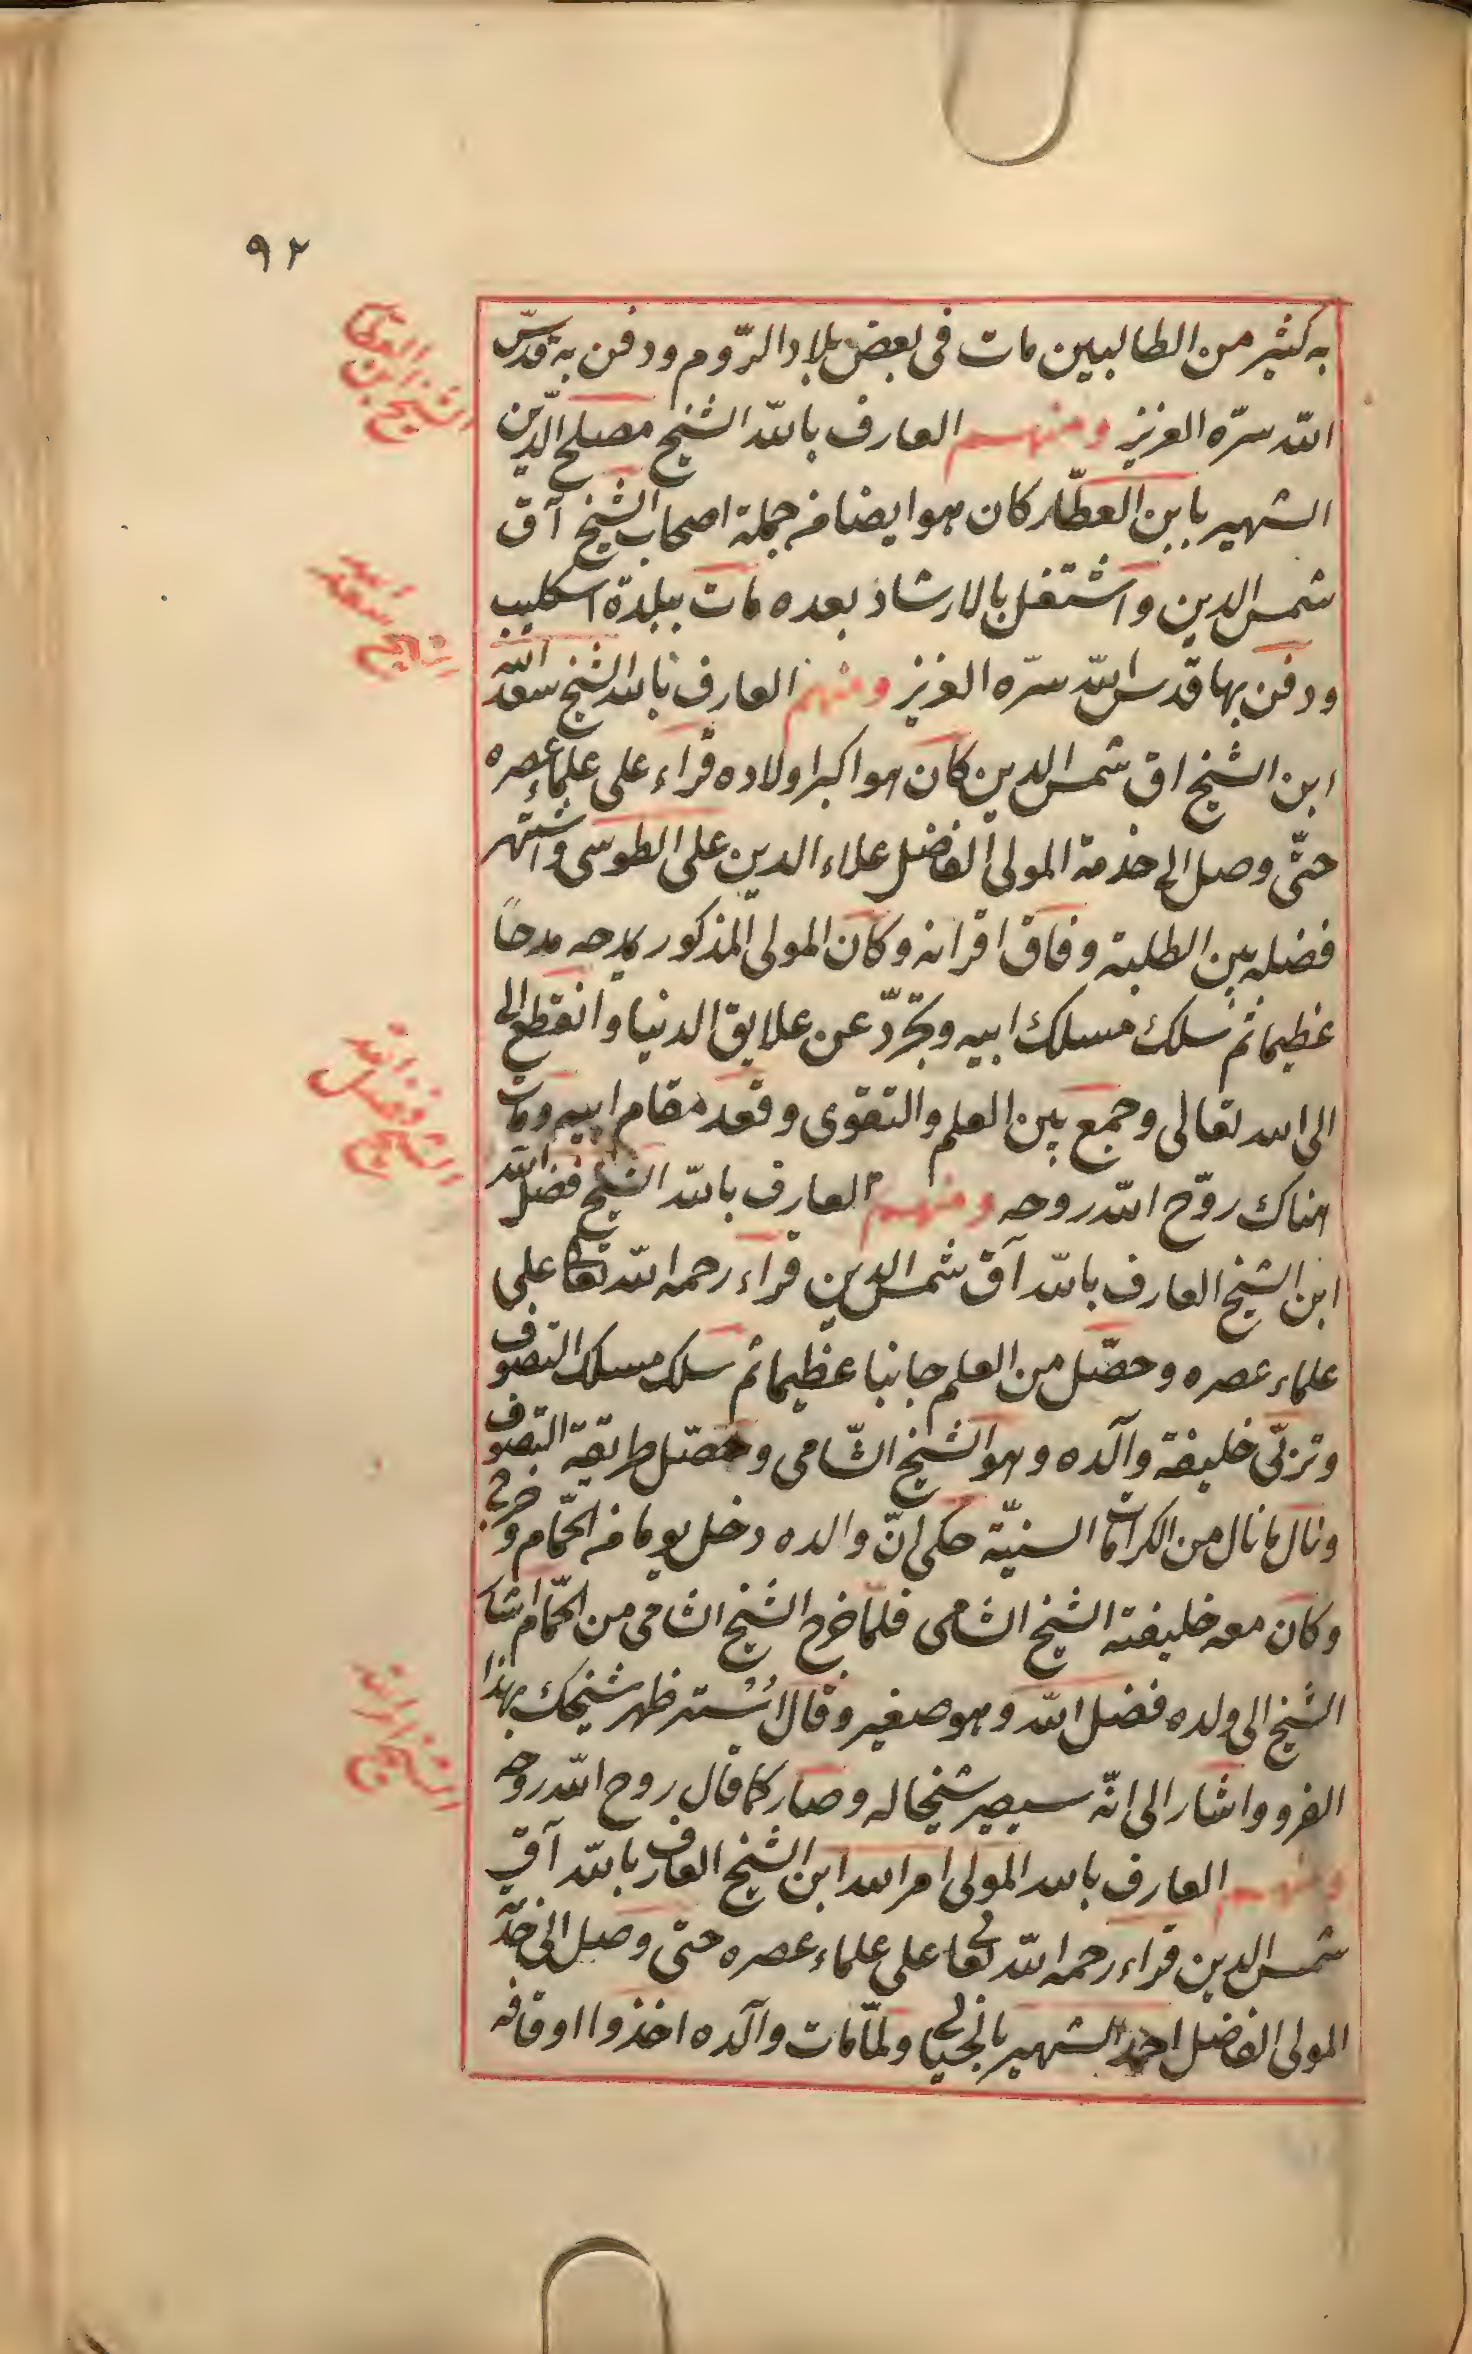 ٩٢
به كثير من الطالبين مات فى بعض بلاد الرّوم ودفن به قدّس
الله سرّه العزيز ومنهم العارف بالله الشيخ مصلح الدّين
الشهير بابن العطّار كان هو ايضا من جملة اصحاب الشيخ آق
شمس الدين واشتغل بالارشاد بعده مات ببلدة اسكليب
ودفن بها قدس الله سرّه العزيز ومنهم العارف بالله الشيخ سعد الله
ابن الشيخ اق شمس الدين كان هو اكبر اولاده قراء على علماء عصره
حتّى وصل الى خدمة المولى الفاضل علاء الدين على الطوسى واشتهر
فضله بين الطلبة وفاق اقرانه وكان المولى المذكور يمدحه مدحاً
عظيما ثم سلك مسلك ابيه وتجرّد عن علايق الدنيا وانقطع الى
الى الله تعالى وجمع بين العلم والتقوى وقعد مقام ابيه ومات
هناك روّح الله روحه ومنهم العارف بالله الشيخ فضل الله
ابن الشيخ العارف بالله آق شمس الدين قراء رحمه الله تعالى على
علماء عصره وحصّل من العلم جانبا عظيما ثم سلك مسلك التصوف
وتربّى خليفة والده وهو الشيخ الشّامى وحصّل طريقة التصوف
ونال ما نال من الكرامات السنيّة حكى انّ والده دخل يوما فى الحمّام وخرج
وكان معه خليفته الشيخ الشامى فلمّا خرج الشيخ الشامى من الحمّام اشار
الشيخ الى ولده فضل الله وهو صغير وقال اُسْتر ظهر شيخك بهذا
الفرو واشار الى انّه سيصير شيخا له وصار كما قال روح الله روحه
ومنهم العارف بالله المولى امر الله ابن الشيخ العارف بالله آق
شمس الدين قراء رحمه الله تعالى على علماء عصره حتى وصل الى خدمة
المولى الفاضل احمد الشهير بالخيالى ولمّا مات والده اخذوا اوقافه
الشيخ ابن العطار
الشيخ سعد الله
الشيخ فضل الله
الشيخ امر الله